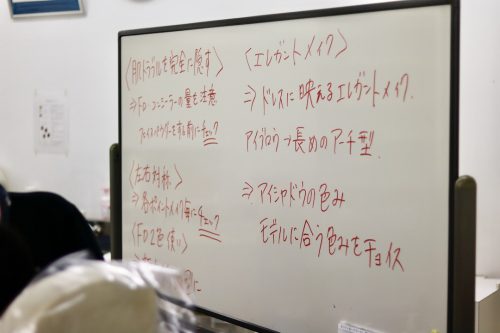 〈肌トラブルを完全に隠す〉
⇒ FD・コンシーラーの量も注意
フェイスパウダーをする前にチェック
〈左右対称〉
⇒ 各ポイントメイク毎にチェック
〈FD2色使い〉
〈エレガントメイク〉
⇒ ドレスに映えるエレガントメイク.
アイブロウ→長めのアーチ型.
⇒ アイシャドウの色み
モデルに合う色みをチョイス